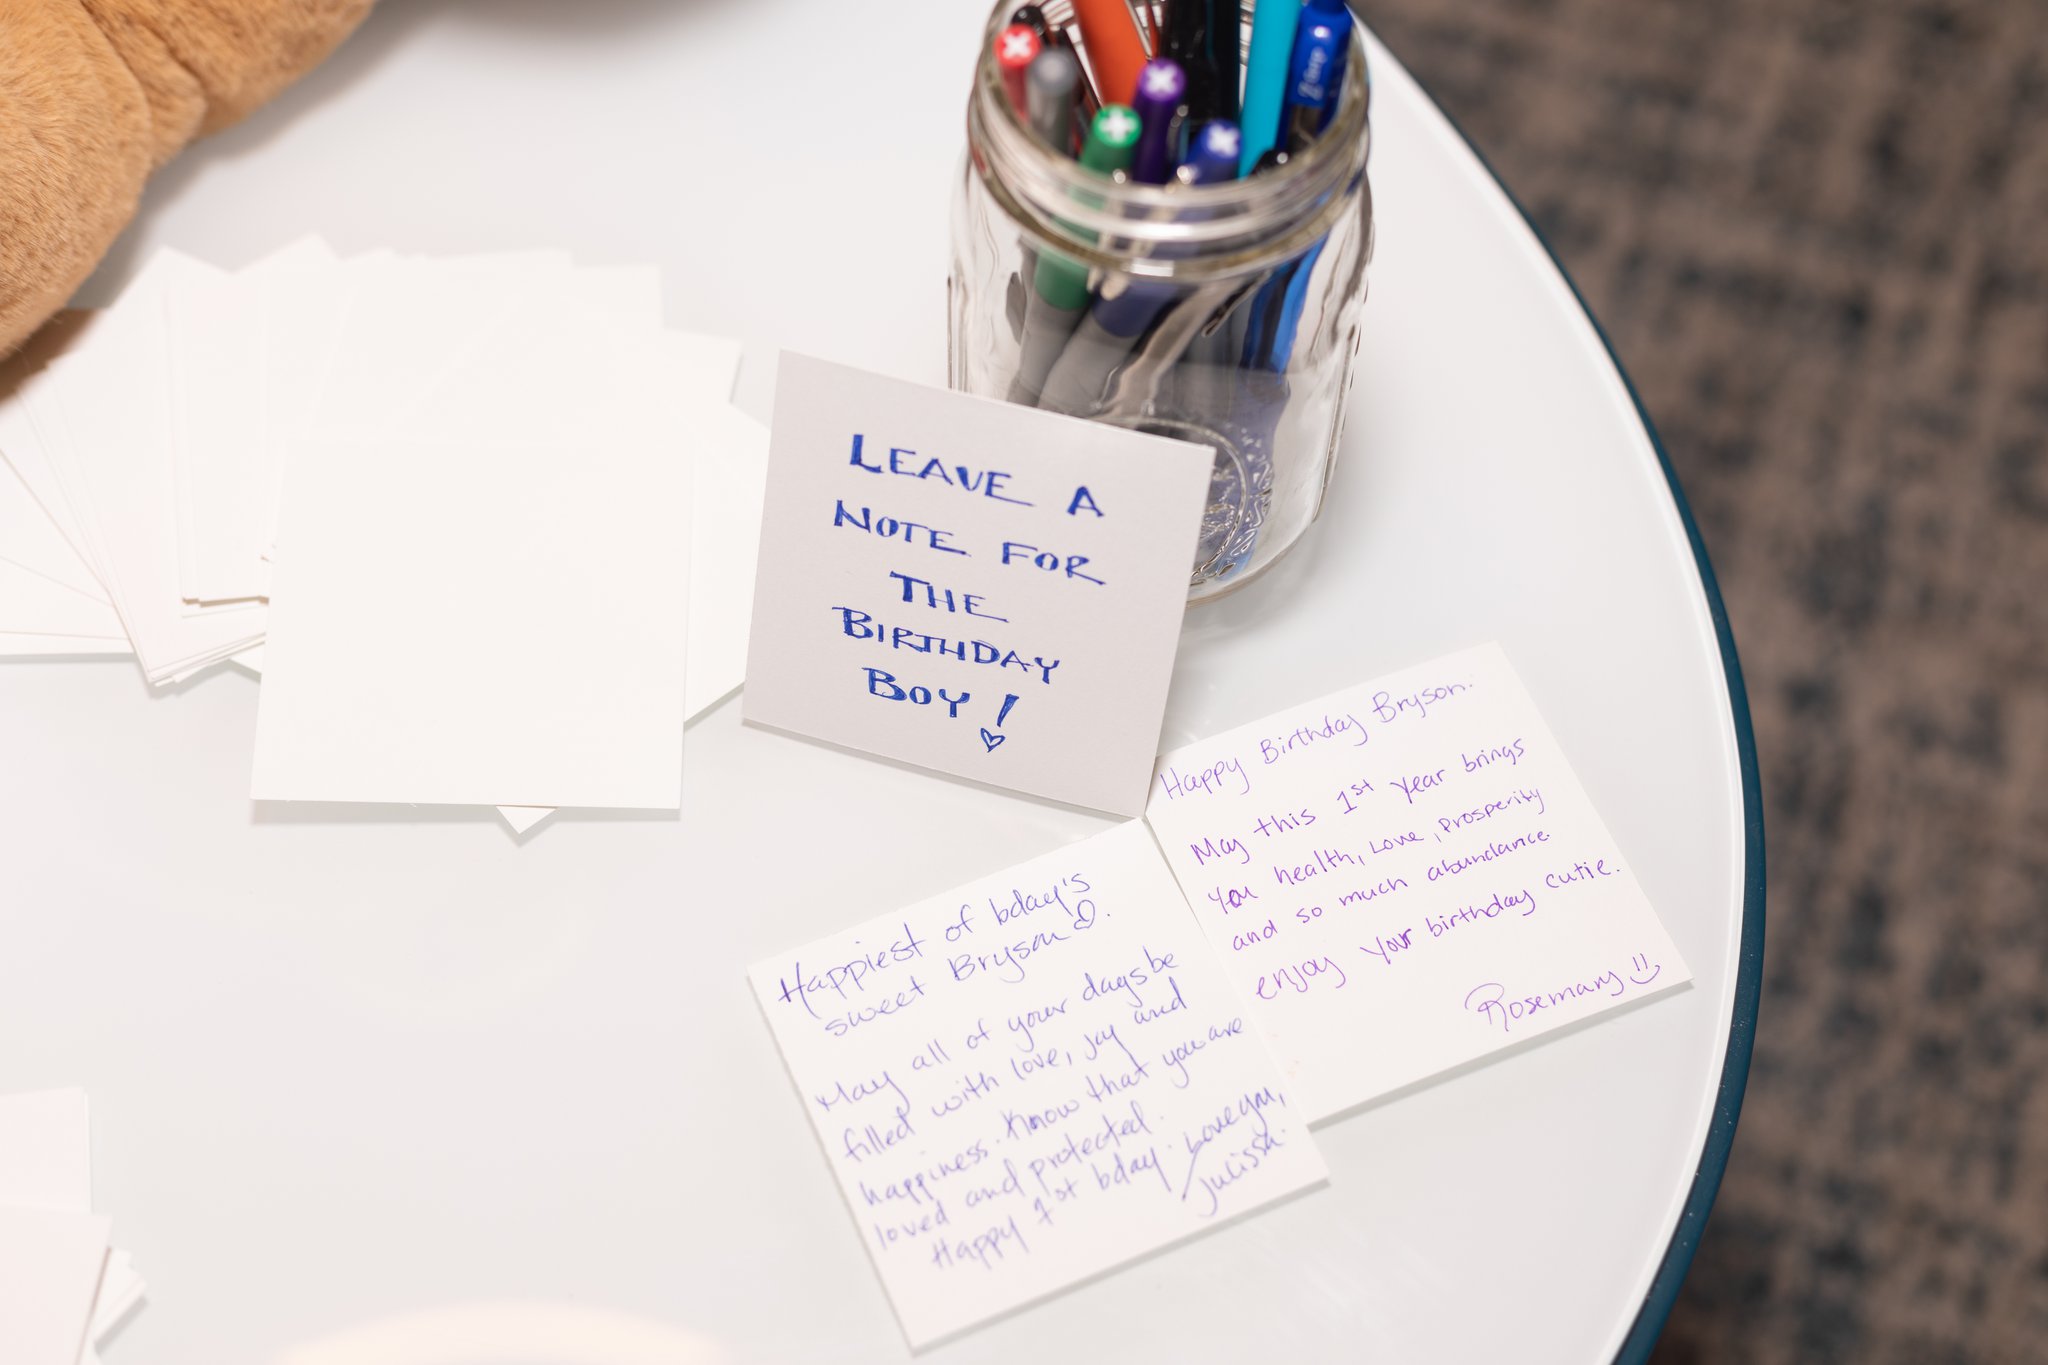 LEAVE A
NOTE FOR
THE
BIRTHDAY
BOY!
Happy Birthday Bryson.
May this 1st year brings
you health, Love, Prosperity
and so much abundance.
enjoy your birthday cutie.
Rosemary
Happiest of bday's
sweet Bryson.
May all of your days be
filled with love, joy and
happiness. Know that you are
loved and protected.
Happy 1st bday. Love you,
Julissa.